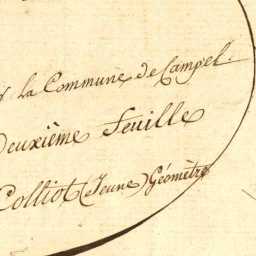 la Commune de Campel.
Deuxième feuille
Colliot (Jeune) Géomètre